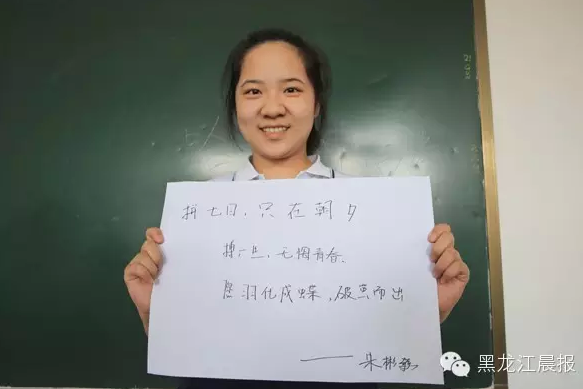 拼七日，只在朝夕
搏一，无悔青春。
羽化成蝶，破茧而出
—— 朱彬
黑龙江晨报